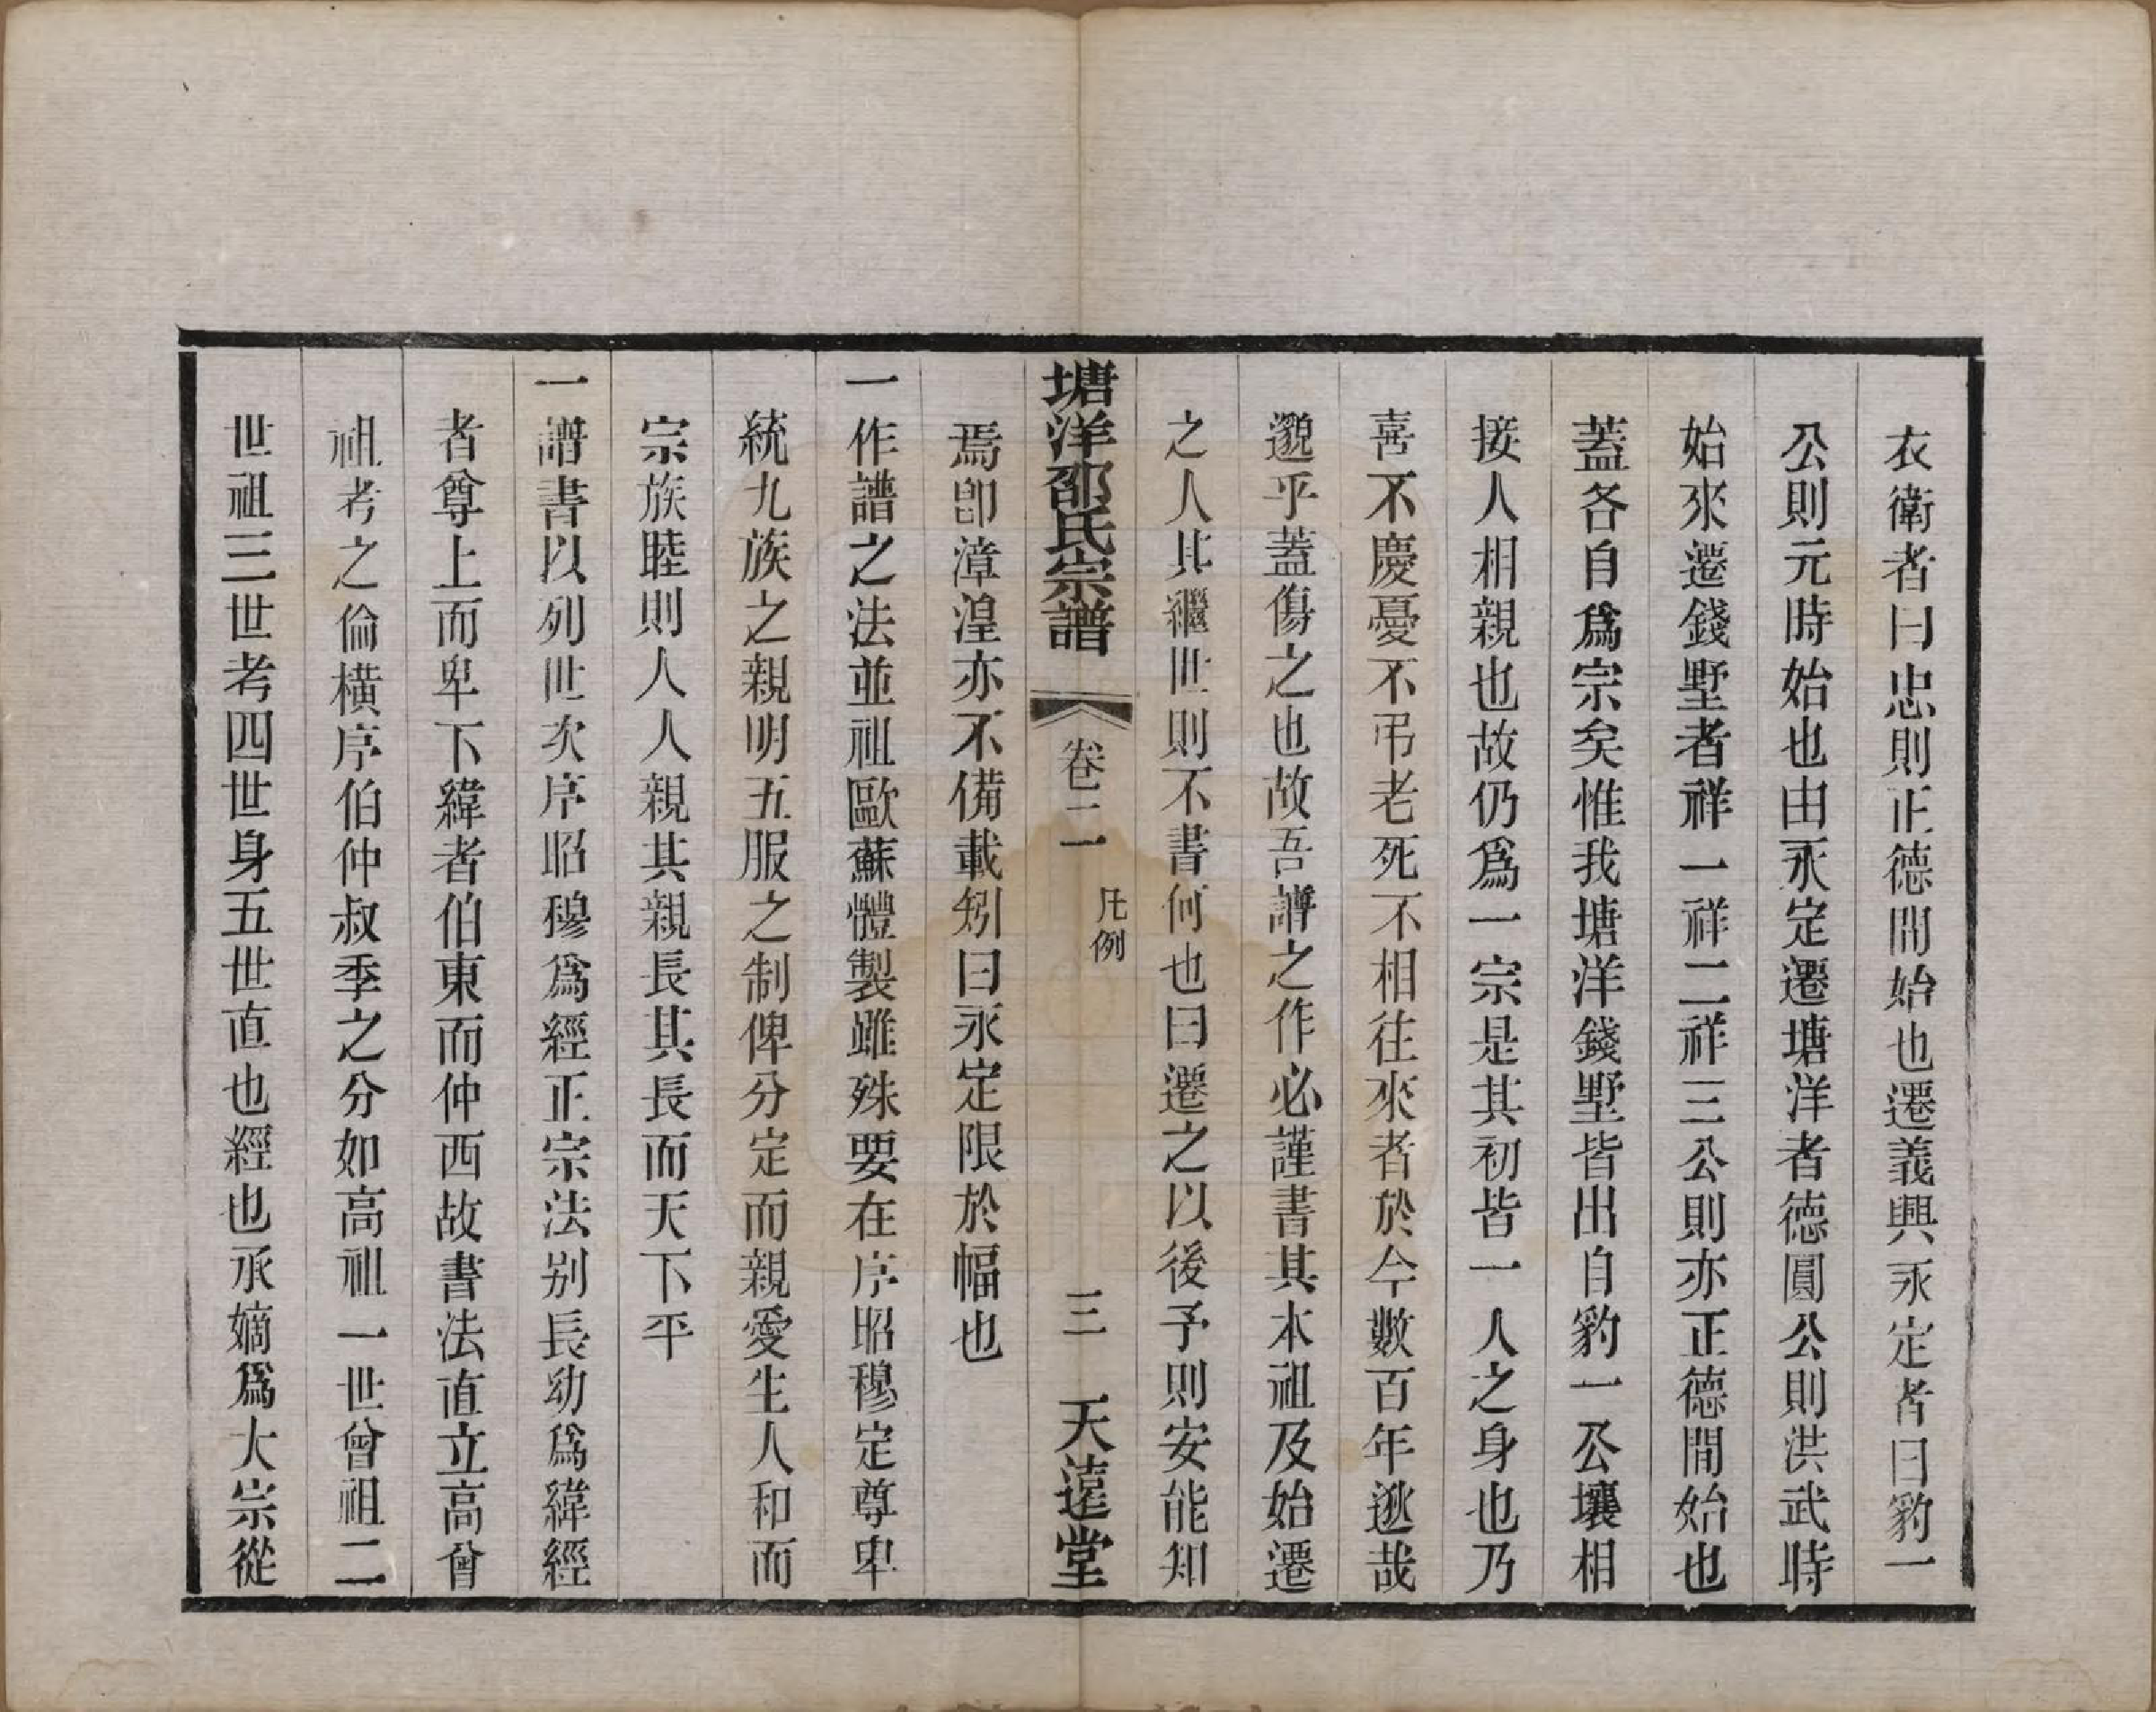 衣衛者曰忠則正德間始也遷義興永定者曰豹一
公則元時始也由永定遷塘洋者德圓公則洪武時
始來遷錢墅者祥一祥二祥三公則亦正德間始也
蓋各自爲宗矣惟我塘洋錢墅皆出自豹一公壤相
接人相親也故仍爲一宗是其初皆一人之身也乃
喜不慶憂不弔老死不相往來者於今數百年逖哉
邈乎蓋傷之也故吾譜之作必謹書其本祖及始遷
之人其繼世則不書何也曰遷之以後予則安能知
塘洋邵氏宗譜 卷二 凡例 三 天遠堂
焉卽漳湟亦不備載矧曰永定限於幅也
一作譜之法並祖歐蘇體製雖殊要在序昭穆定尊卑
統九族之親明五服之制俾分定而親愛生人和而
宗族睦則人人親其親長其長而天下平
一譜書以列世次序昭穆爲經正宗法别長幼爲緯經
者尊上而卑下緯者伯東而仲西故書法直立高曾
祖考之倫橫序伯仲叔季之分如高祖一世曾祖二
世祖三世考四世身五世直也經也承嫡爲大宗從